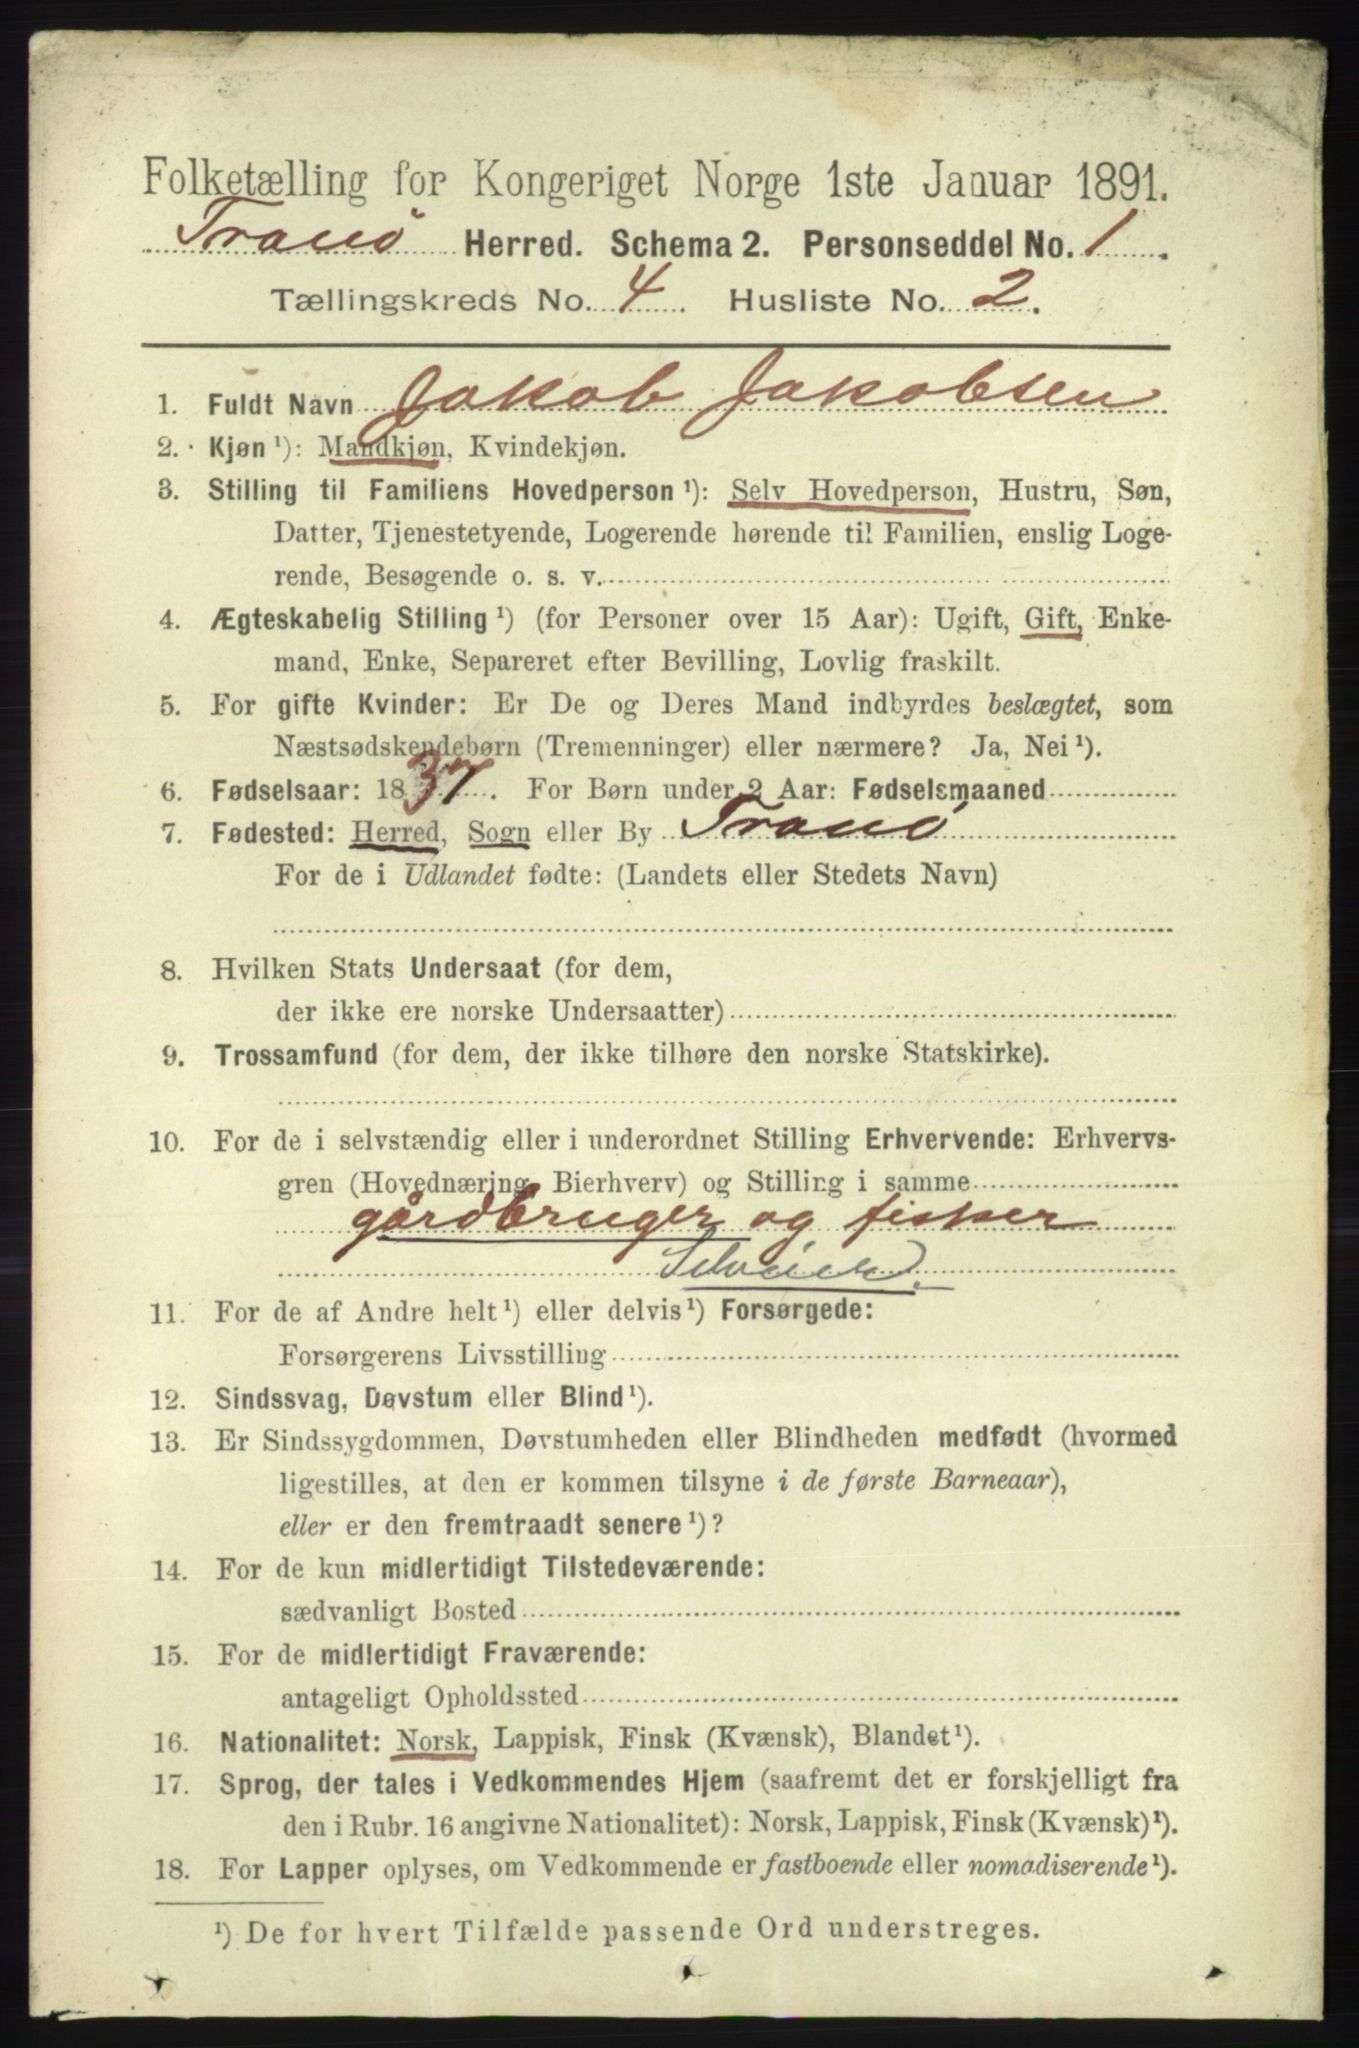 Folketælling for Kongeriget Norge 1ste Januar 1891.
Tranö Herred. Schema 2. Personseddel No. 1.
Tællingskreds No. 4. Husliste No. 2.
1. Fuldt Navn Jakob Jakobsen
2. Kjøn ¹): Mandkjøn, Kvindekjøn.
3. Stilling til Familiens Hovedperson ¹): Selv Hovedperson, Hustru, Søn,
Datter, Tjenestetyende, Logerende hørende til Familien, enslig Loge-
rende, Besøgende o. s. v.
4. Ægteskabelig Stilling ¹) (for Personer over 15 Aar): Ugift, Gift, Enke-
mand, Enke, Separeret efter Bevilling, Lovlig fraskilt.
5. For gifte Kvinder: Er De og Deres Mand indbyrdes beslægtet, som
Næstsødskendebørn (Tremenninger) eller nærmere? Ja, Nei ¹).
6. Fødselsaar: 1837. For Børn under 2 Aar: Fødselsmaaned
7. Fødested: Herred, Sogn eller By Tranö
For de i Udlandet fødte: (Landets eller Stedets Navn)
8. Hvilken Stats Undersaat (for dem,
der ikke ere norske Undersaatter)
9. Trossamfund (for dem, der ikke tilhøre den norske Statskirke).
10. For de i selvstændig eller i underordnet Stilling Erhvervende: Erhvervs-
gren (Hovednæring, Bierhverv) og Stilling i samme
gårdbruger og fisker
Selveier.
11. For de af Andre helt ¹) eller delvis ¹) Forsørgede:
Forsørgerens Livsstilling
12. Sindssvag, Døvstum eller Blind ¹).
13. Er Sindssygdommen, Døvstumheden eller Blindheden medfødt (hvormed
ligestilles, at den er kommen tilsyne i de første Barneaar),
eller er den fremtraadt senere ¹)?
14. For de kun midlertidigt Tilstedeværende:
sædvanligt Bosted
15. For de midlertidigt Fraværende:
antageligt Opholdssted
16. Nationalitet: Norsk, Lappisk, Finsk (Kvænsk), Blandet ¹).
17. Sprog, der tales i Vedkommendes Hjem (saafremt det er forskjelligt fra
den i Rubr. 16 angivne Nationalitet): Norsk, Lappisk, Finsk (Kvænsk) ¹).
18. For Lapper oplyses, om Vedkommende er fastboende eller nomadiserende ¹).
¹) De for hvert Tilfælde passende Ord understreges.